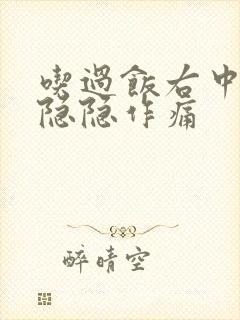 喫過飯右中
隐隐作痛
醉晴空